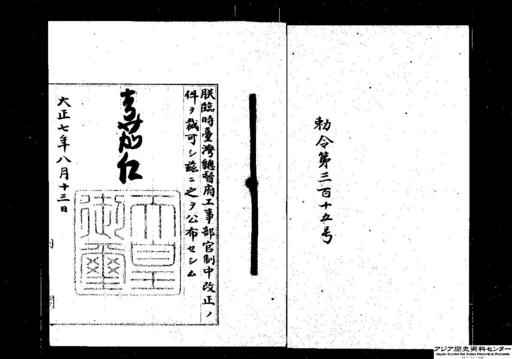 勅令第三百十五号
朕臨時臺灣總督府工事部官制中改正ノ
件ヲ裁可シ茲ニ之ヲ公布セシム
嘉仁
天皇
御璽
大正七年八月十三日
内閣
アジア歴史資料センター
Japan Center for Asian Historical Records